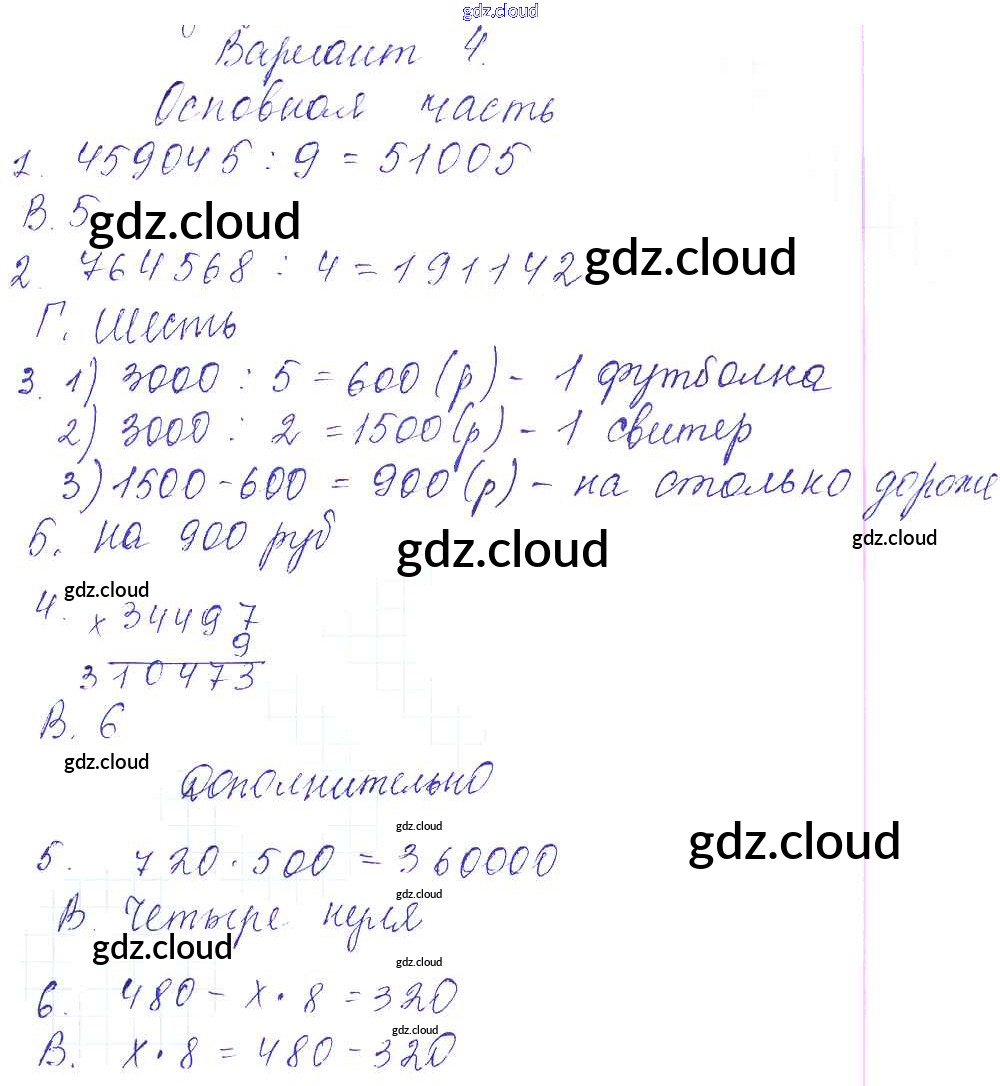 gdz.cloud
Вариант 4.
Основная часть
1. 459045 : 9 = 51005
В. 5
gdz.cloud
2. 764568 : 4 = 191142
gdz.cloud
Г. Шесть
3. 1) 3000 : 5 = 600 (р) - 1 футболка
2) 3000 : 2 = 1500 (р) - 1 свитер
3) 1500 - 600 = 900 (р) - на столько дороже
Б. на 900 руб
gdz.cloud
gdz.cloud
gdz.cloud
4. х 34497
9
310473
В. 6
gdz.cloud
Дополнительно
gdz.cloud
gdz.cloud
5. 720 · 500 = 360000
gdz.cloud
В. Четыре нуля
gdz.cloud
gdz.cloud
6. 480 - х · 8 = 320
gdz.cloud
В. х · 8 = 480 - 320